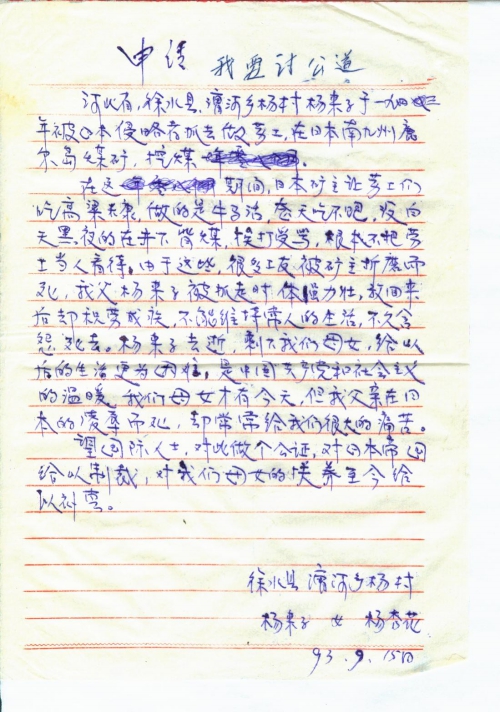 申请 我要讨公道
河北省徐水县漕河乡杨村杨来子于一九四三
年被日本侵略者抓去做劳工,在日本南九州鹿
尔岛煤矿,挖煤。
在这期间,日本矿主让劳工们
吃高梁米,做的是牛马活,卷天吃不吧,没白
天黑夜的在井下背煤,挨打受骂,根本不把劳
工当人看待。由于这些,很多工友被矿主折磨而
死,我父杨来子被抓走时体强力壮,放回来
后却积劳成疾,不能维持常人的生活,不久含
怨死去。杨来子去逝,剩下我们母女,给以
后的生活更为困难,是中国共产党和社会主义
的温暖,我们母女才有今天,但我父亲在日
本的凌辱而死,却常常给我们很大的痛苦。
望国际人士,对此做个公证,对日本帝国
给以制裁,对我们母女的扶养至今给
以补尝。
徐水县漕河乡杨村
杨来子 女 杨杏花
93.9.15日